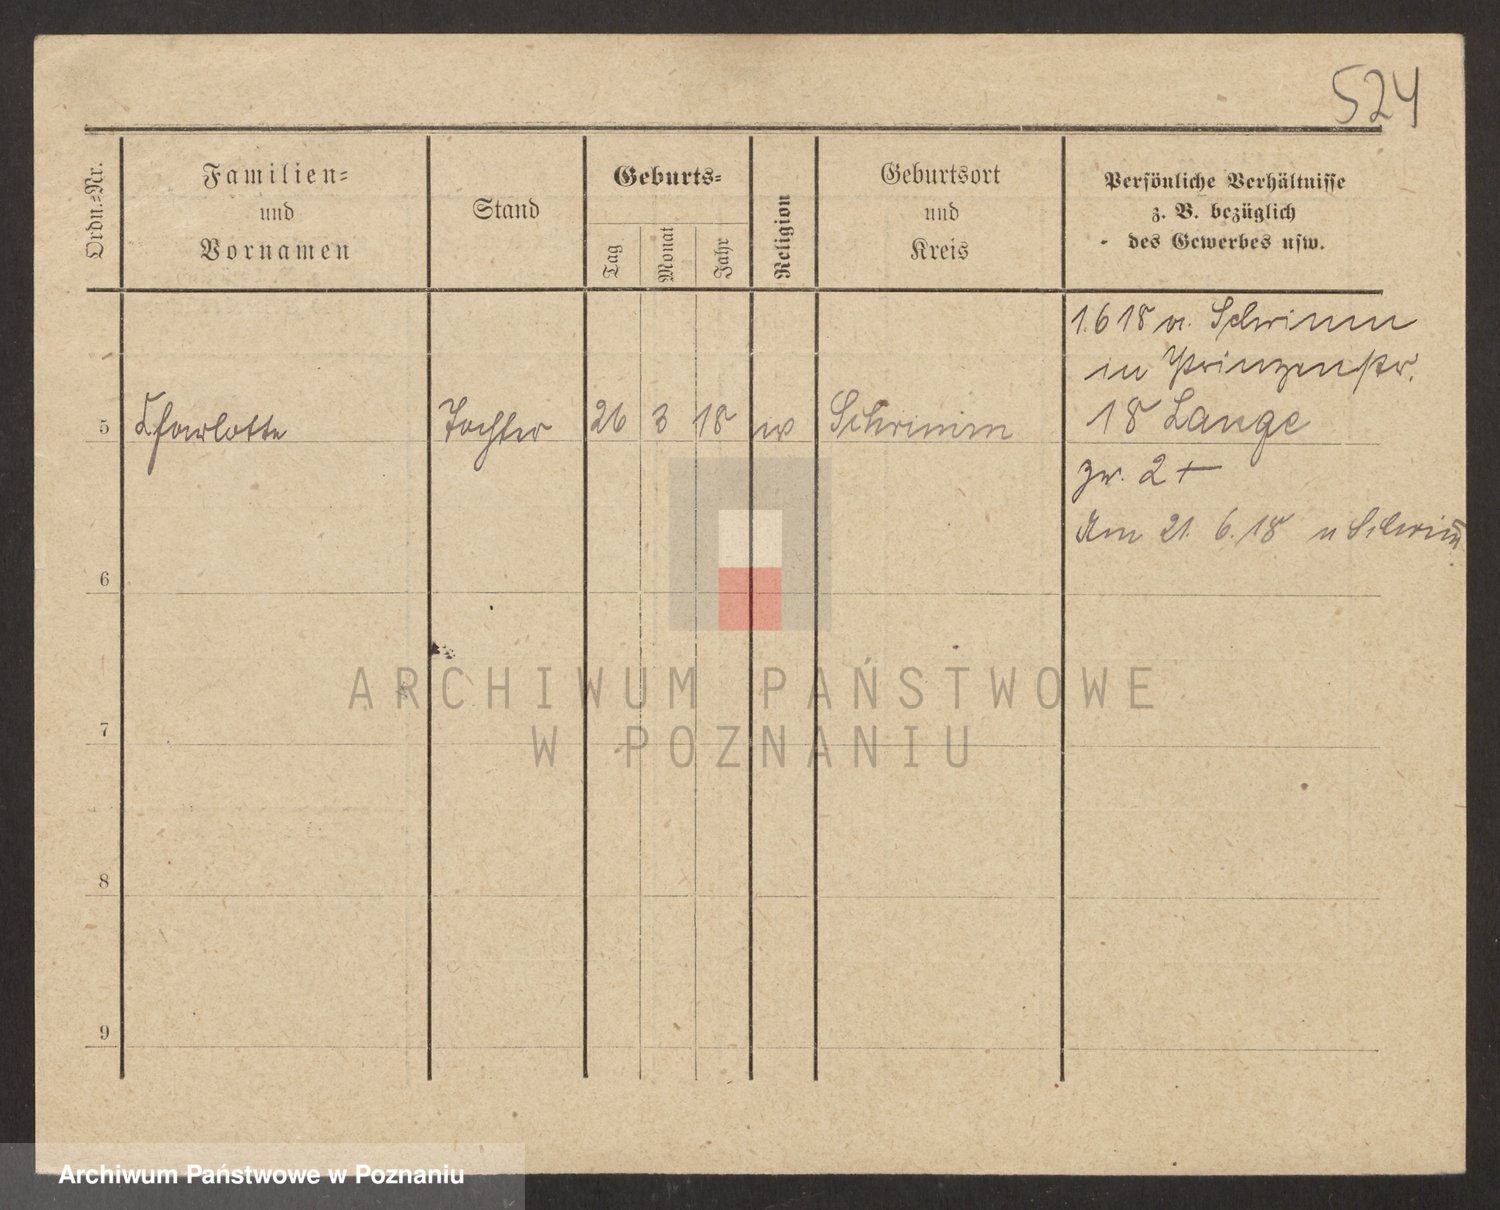 524
Ordn.-Nr.
Familien-
und
Vornamen
Stand
Geburts-
Tag
Monat
Jahr
Religion
Geburtsort
und
Kreis
Persönliche Verhältnisse
z. B. bezüglich
des Gewerbes usw.
1.6 18 v. Schrimm
in Prinzenstr.
18 Lange
5 Charlotte Tochter 26 3 18 Schrimm
zw. 2 +
Am 21. 6. 18 n Schrim̄
6
7
8
9
ARCHIWUM PAŃSTWOWE
W POZNANIU
Archiwum Państwowe w Poznaniu